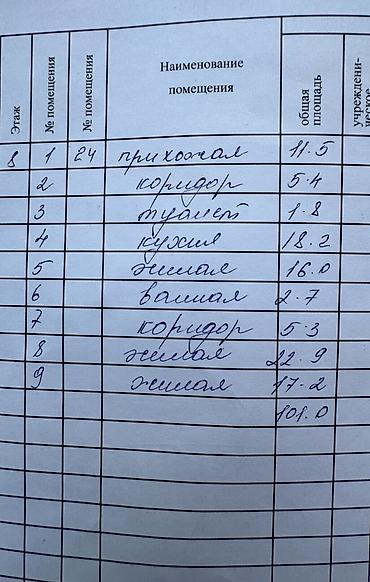 Этаж № помещения № помещения Наименование помещения общая площадь учреждени-ческое
8 1 24 прихожая 11.5
2 коридор 5.4
3 туалет 1.8
4 кухня 18.2
5 жилая 16.0
6 ванная 2.7
7 коридор 5.3
8 жилая 22.9
9 жилая 17.2
101.0